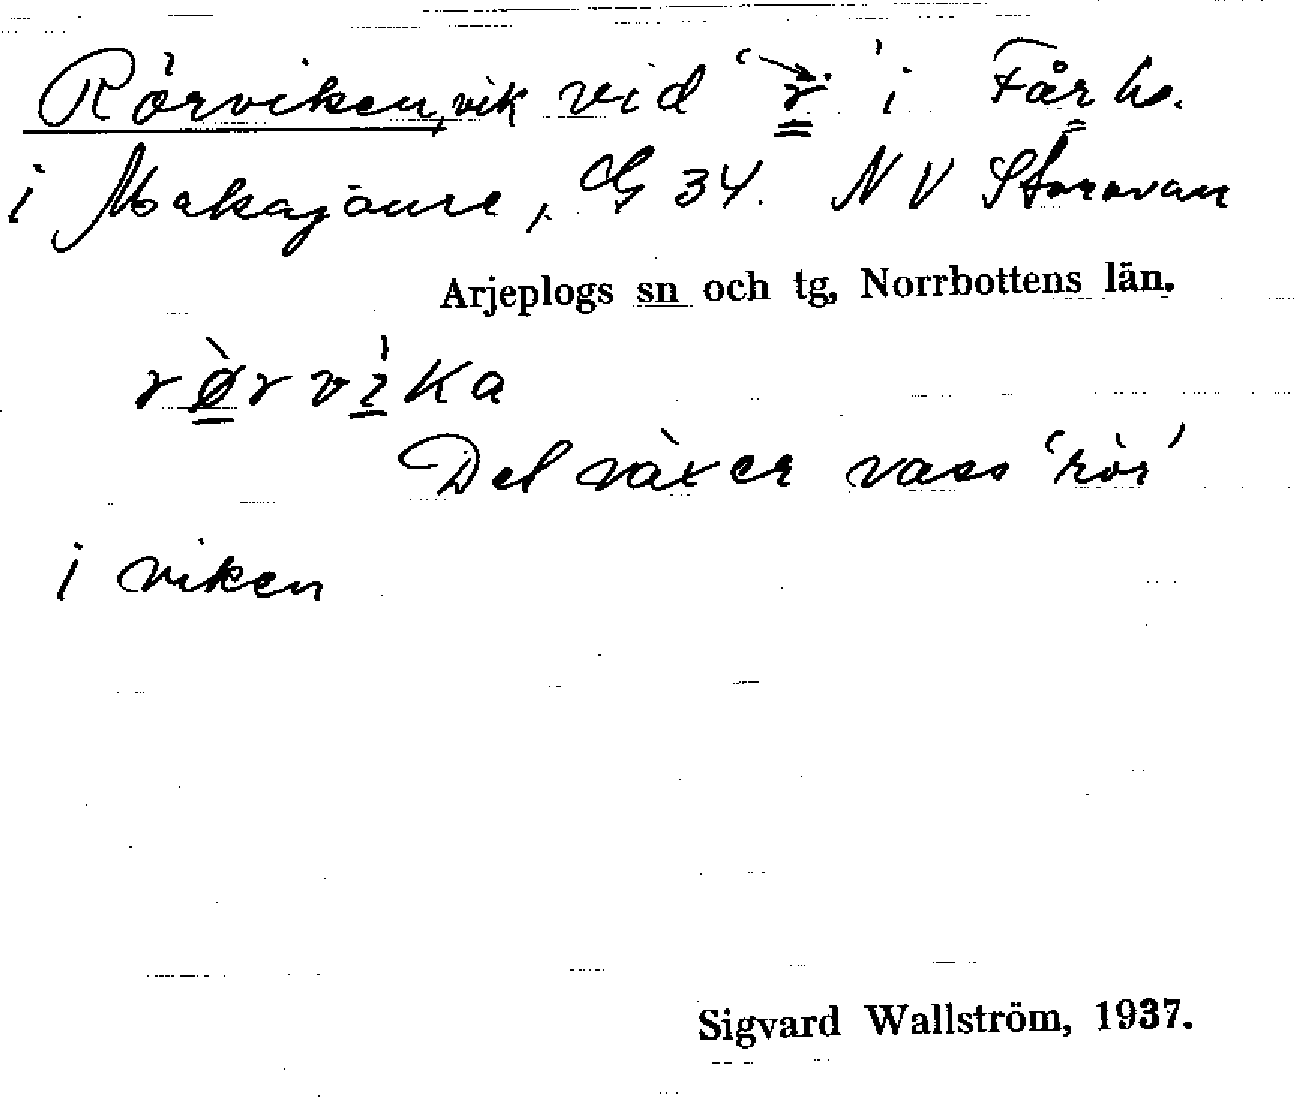 Rörviken, vik vid i Får hs.
i Makajaure, G 34. NV Storavan
Arjeplogs sn och tg, Norrbottens län.
rø̀rvìka
Det växer vass 'rör'
i viken
Sigvard Wallström, 1937.